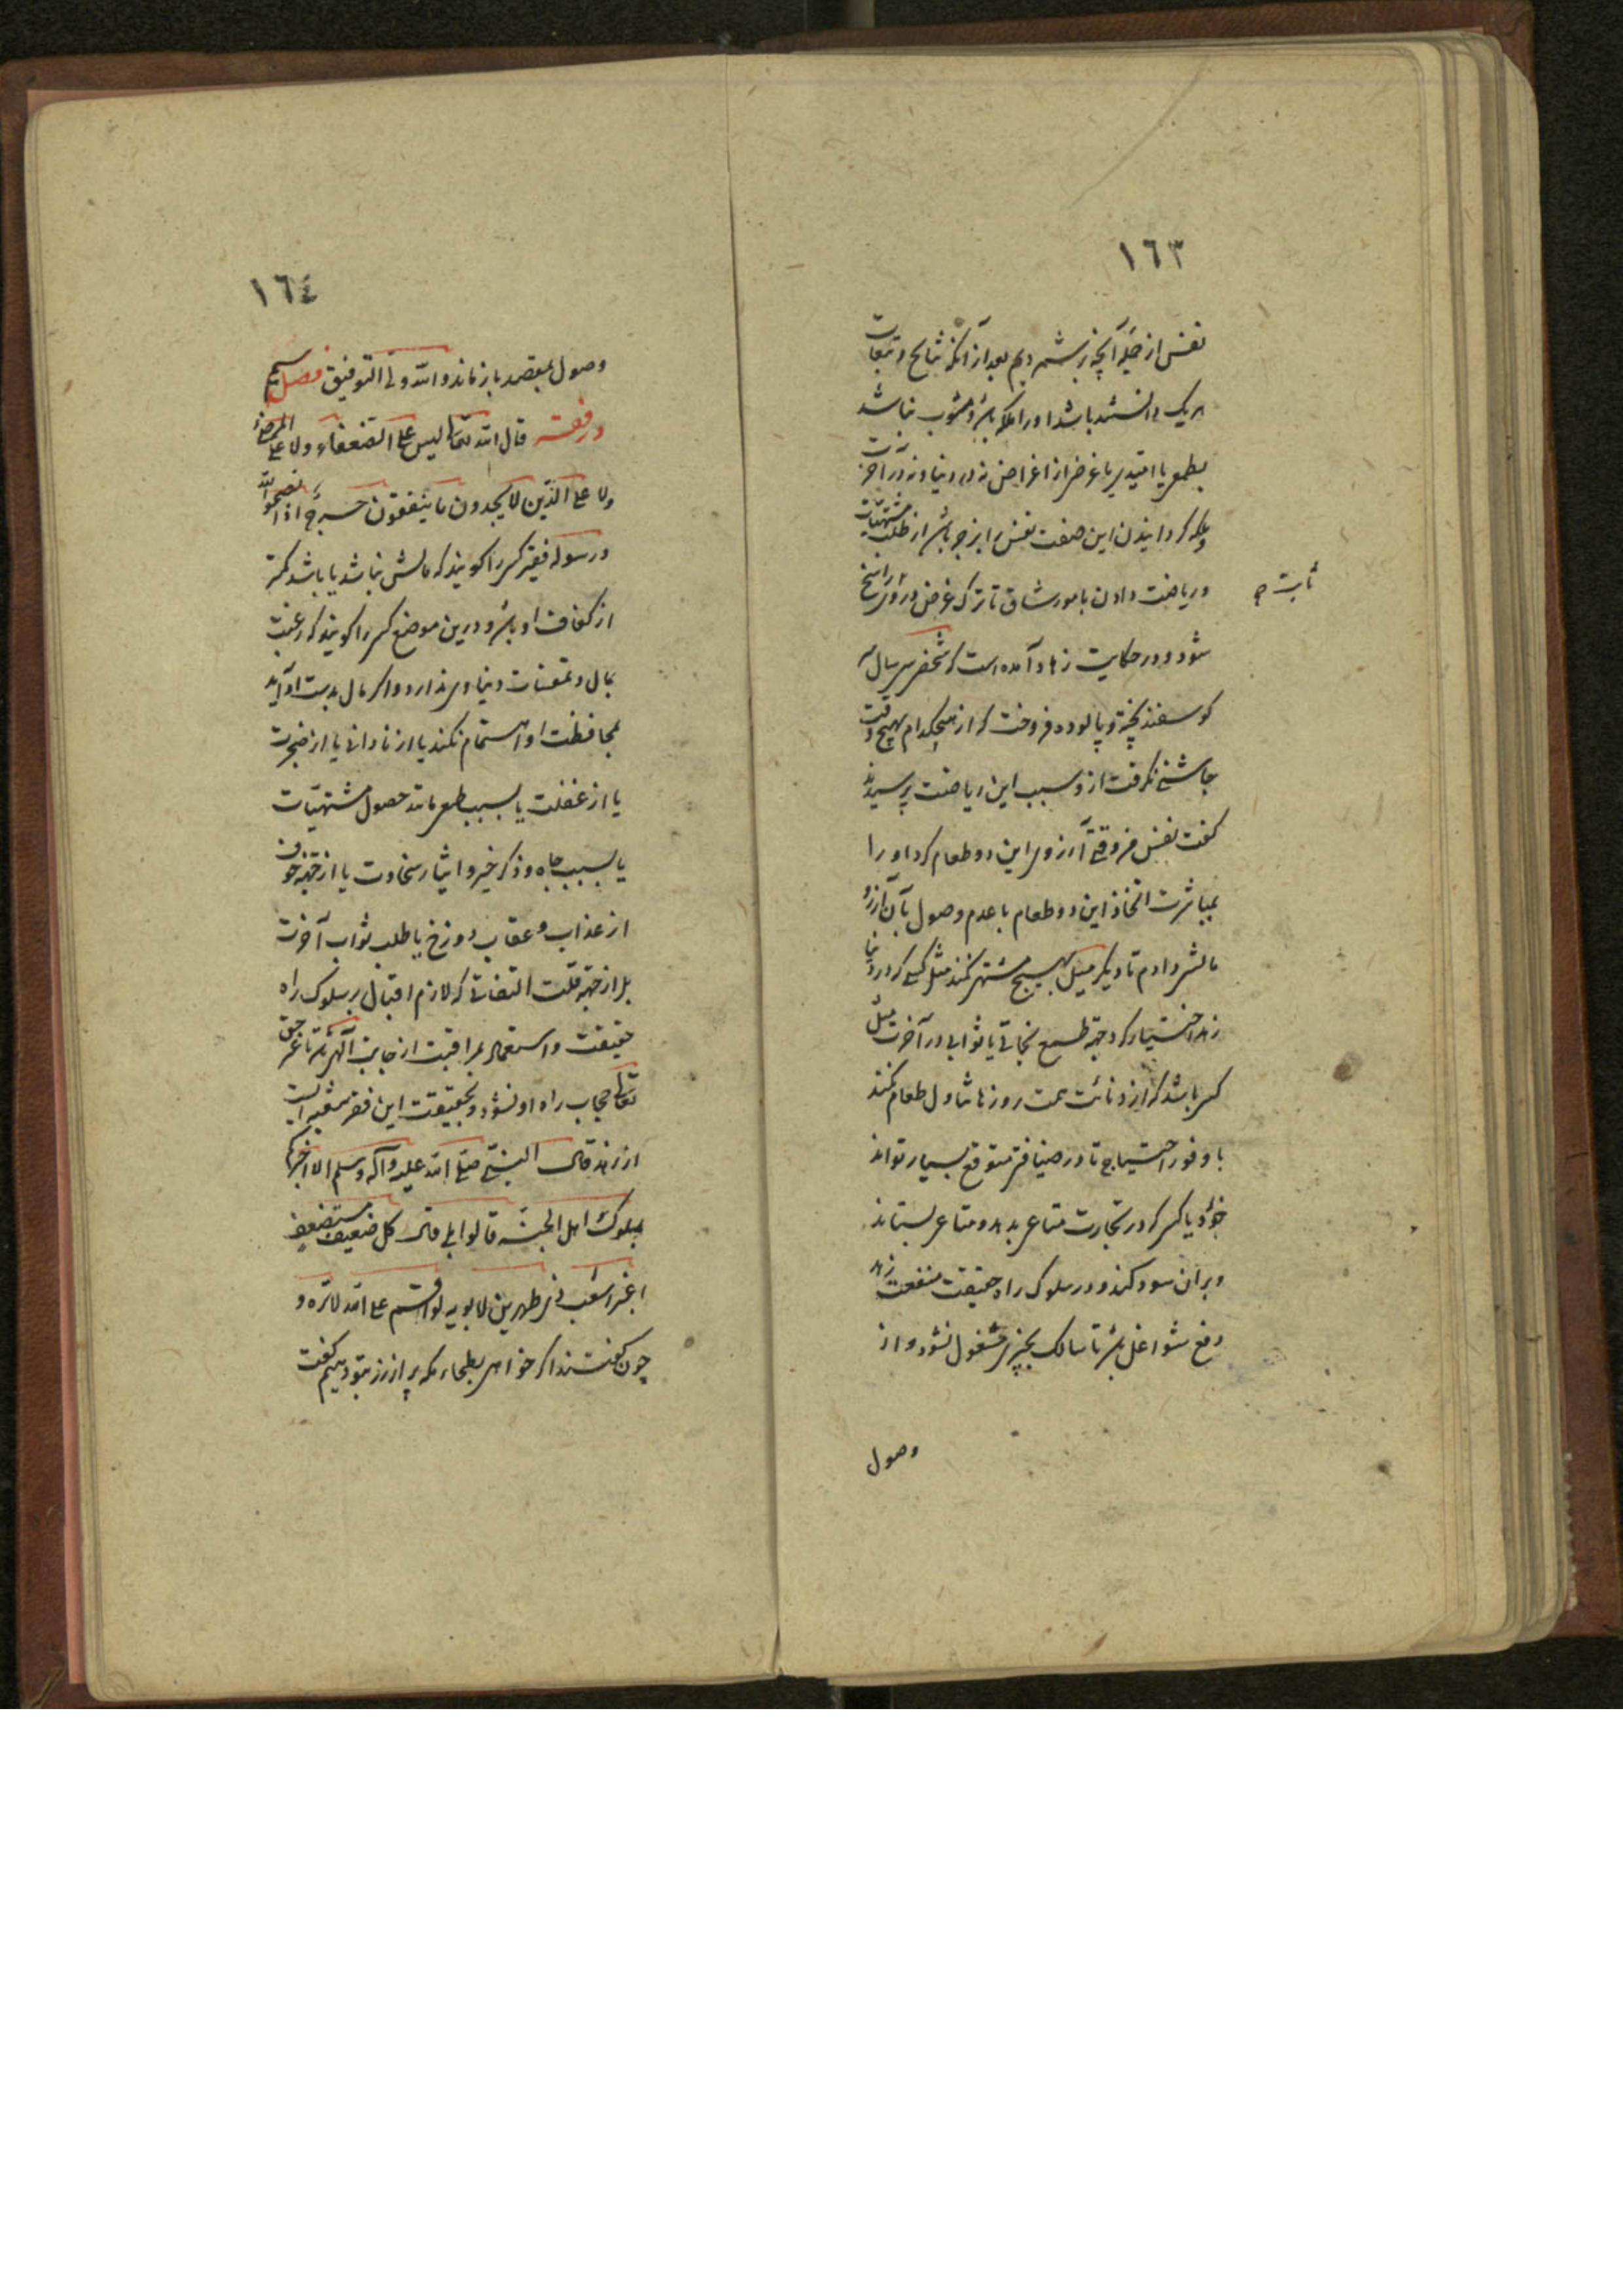 ١٦٣
نفس از جمله آنچه برشمردیم بعد از آنکه نتایج و تبعات
هر یک دانسته باشد او را ملکه باشد و مشوب نباشد
بطمع یا امیدی یا غرضی از اغراض نه در دنیا و نه در آخرت
بلکه گردانیدن این صفت نفس را بزجر باشد از طلب مشتهیات
و ریاضت دادن بامور شاق تا ترک غرض در وی راسخ
ثابت
شود و در حکایت زهاد آمده است که شخصی سی سال سر
گوسفند پخته و پالوده فروخت که از هیچکدام بهیچ وقت
چاشنی نگرفت ازو سبب این ریاضت پرسیدند
گفت نفس من وقتی آرزوی این دو طعام کرد او را
بمباشرت اتخاذ این دو طعام با عدم وصول بآن آرزو
مالش دادم تا دیگر میل بهیچ مشتهی نکند مثل کسی که در دنیا
زهد اختیار کرد جهة طمع نجاتی یا ثوابی در آخرت مثل
کسی باشد که از دنائت همت روزها تناول طعام نکند
با وفور احتیاج تا در ضیافتی متوقع بسیار تواند
خورد یا کسی که در تجارت متاعی بدهد و متاعی بستاند
و بر آن سود کند و در سلوک راه حقیقت منفعت زهد
رفع شواغل باشد تا سالک بچیزی مشغول نشود و از
وصول
١٦٤
وصول بمقصد باز نماند و الله ولی التوفیق فصل سیم
در فقر قال الله تعالی لیس علی الضعفاء ولا علی المرضی
ولا علی الذین لا یجدون ما ینفقون حرج اذا نصحوا لله
ورسوله فقیر کسی را گویند که مالش نباشد یا باشد کمتر
از کفاف او باشد و درین موضع کسی را گویند که رغبت
بمال و مقتنیات دنیاوی ندارد و اگر مال بدست او آید
بمحافظت او اهتمام نکند یا از نادانی یا از ضجرت
یا از غفلت یا بسبب طمع مانند حصول مشتهیات
یا بسبب جاه و ذکر خیر و ایثار سخاوت یا از جهة خوف
از عذاب و عقاب دوزخ یا طلب ثواب آخرت
بل از جهة قلت التفاتی که لازم اقبال بر سلوک راه
حقیقت و اشتغال بمراقبت از جانب الهی باشد تا غیر حق
تعالی حجاب راه او نشود و بحقیقت این فقر شعبه ایست
از زهد قال النبی صلی الله علیه وآله وسلم الا اخبرکم
بملوک اهل الجنه قالوا بلی قال کل ضعیف مستضعف
اغبر اشعث ذی طمرین لا یوبه لو اقسم علی الله لابره و
چون گفتند اگر خواهی بطحاء مکه پر از زر بتو دهیم گفت